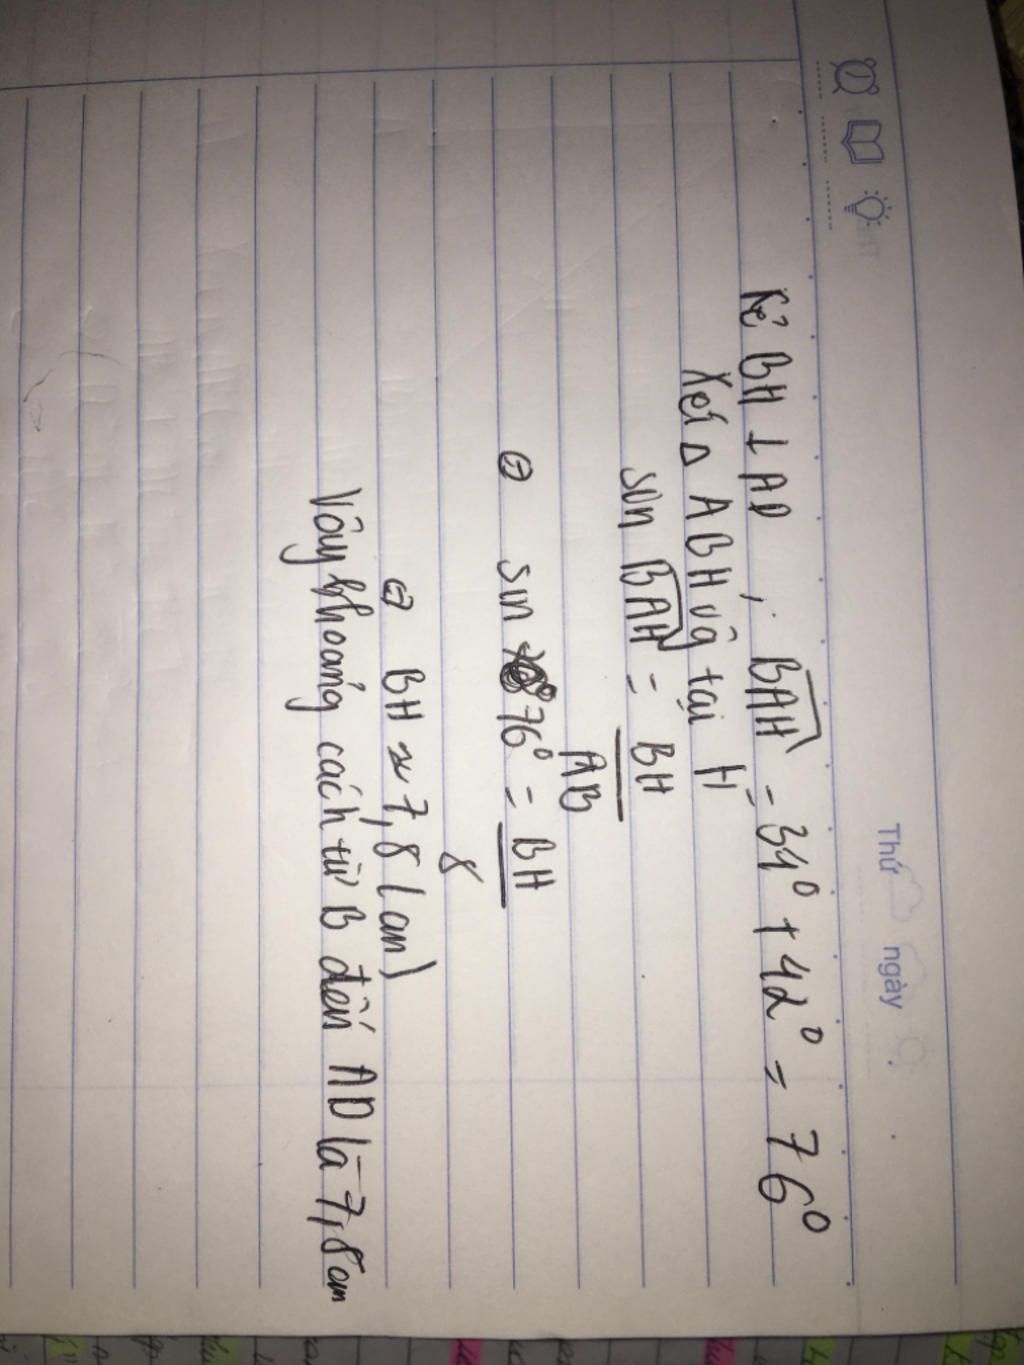 Thứ ngày
Kẻ BH ⊥ AD , BAH = 34° + 42° = 76°
Xét Δ ABH vg tại H
sin BAH = BH
AB
⇔ sin 76° = BH
8
⇔ BH ≈ 7,8 (cm)
Vậy khoảng cách từ B đến AD là 7,8cm